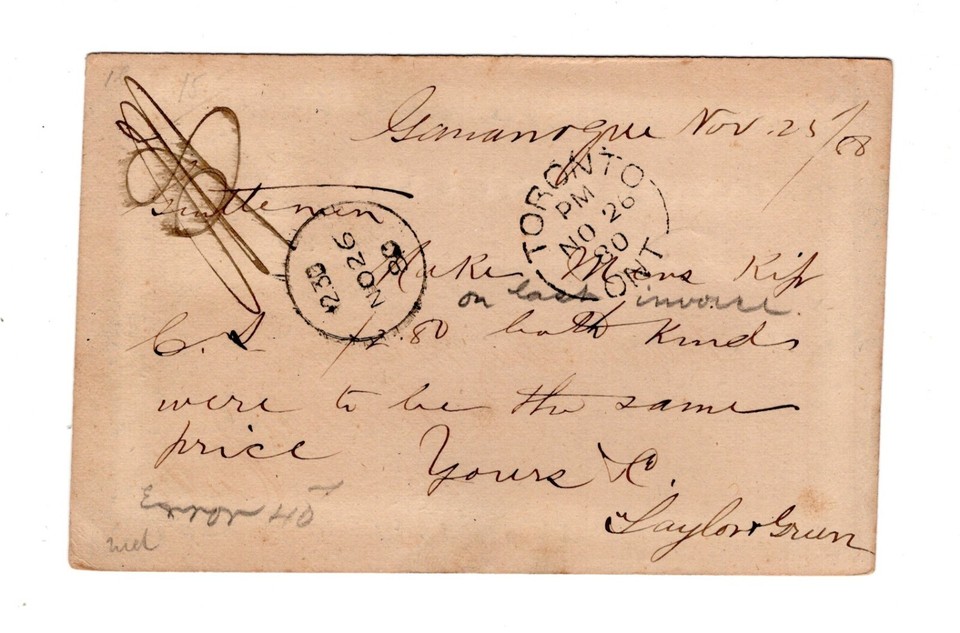 Gananoque Nov. 25/80
Gentlemen
TORONTO
PM
NO 26
80
ONT
NO 26
80
Make Mens Kip
on last invoice.
C.S. 12.80 both kinds
were to be the same
price Yours &c.
Taylor & Green
Error 40